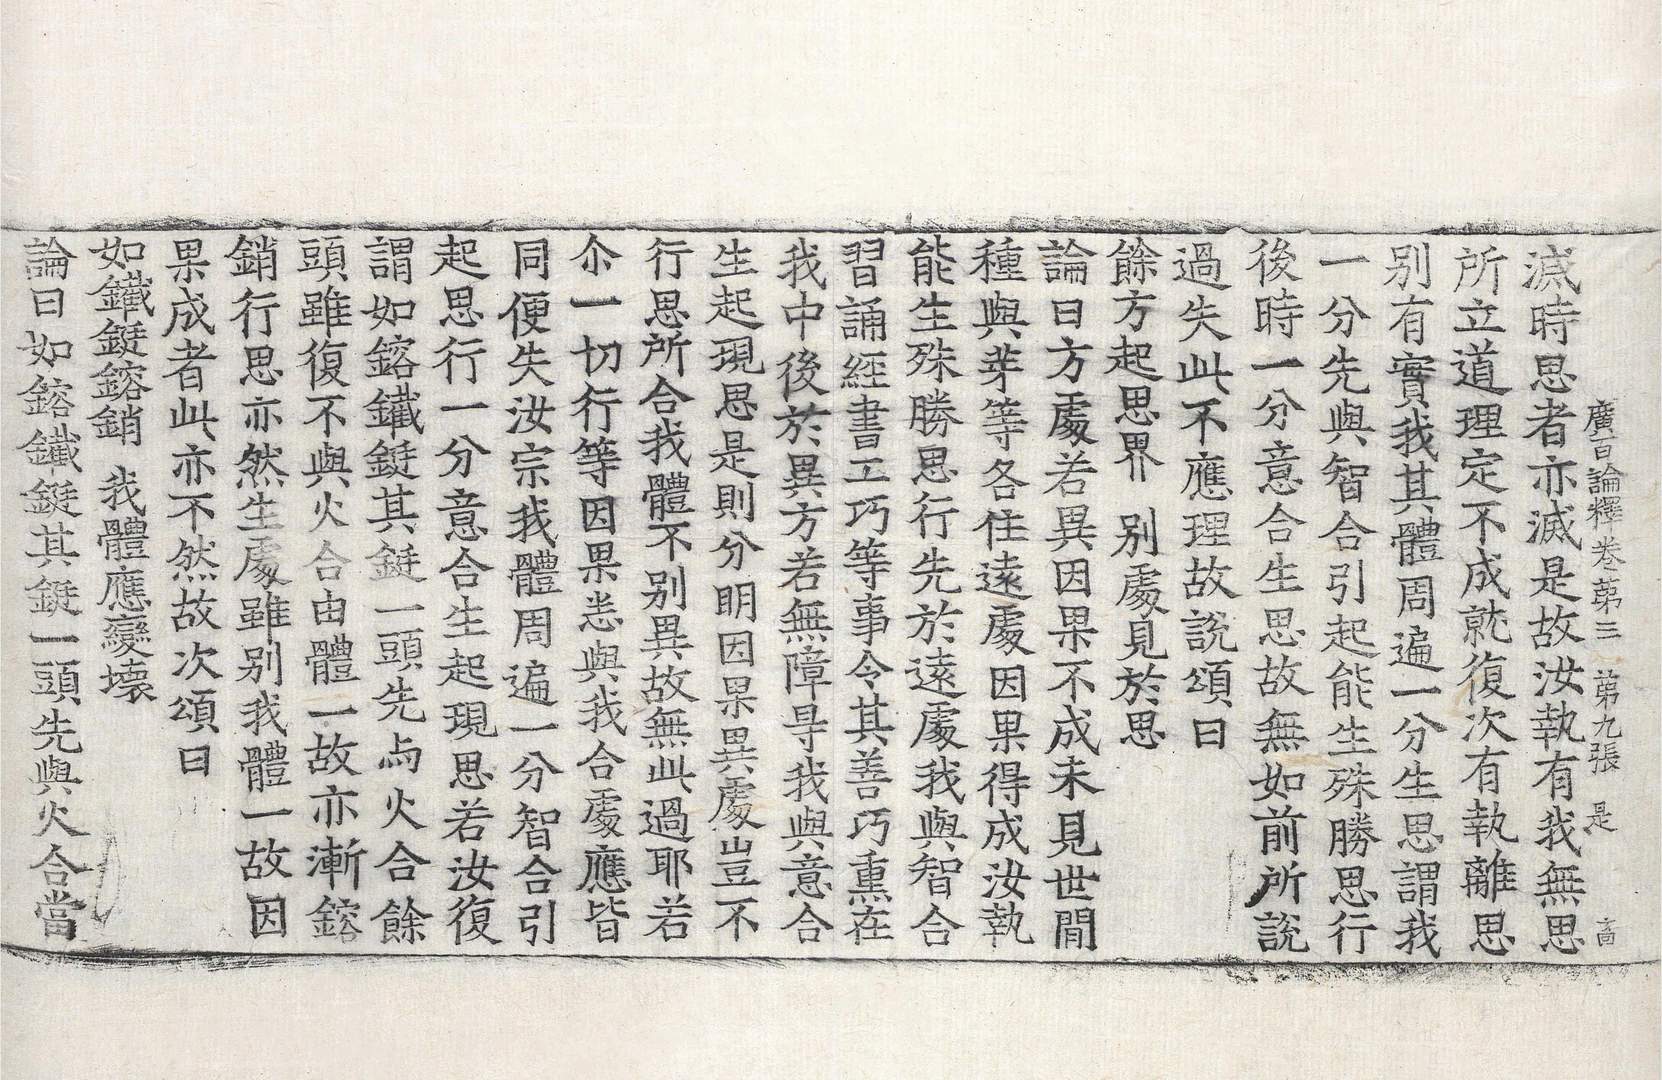 廣百論釋卷苐三 苐九張 是 啚
滅時思者亦滅是故汝執有我無思
所立道理定不成就復次有執離思
别有實我其體周遍一分生思謂我
一分先與智合引起能生殊勝思行
後時一分意合生思故無如前所說
過失此不應理故說頌曰
餘方起思界 别處見於思
論曰方處若異因果不成未見世間
種與芽等各住遠處因果得成汝執
能生殊勝思行先於遠處我與智合
習誦經書工巧等事令其善巧熏在
我中後於異方若無障㝵我與意合
生起現思是則分明因果異處豈不
行思所合我體不别異故無此過耶若
尒一切行等因果恙與我合處應皆
同便失汝宗我體周遍一分智合引
起思行一分意合生起現思若汝復
謂如鎔鐵鋌其鋌一頭先与火合餘
頭雖復不與火合由體一故亦漸鎔
銷行思亦然生處雖别我體一故因
果成者此亦不然故次頌曰
如鐵鋌鎔銷 我體應變壞
論曰如鎔鐵鋌其鋌一頭先與火合當